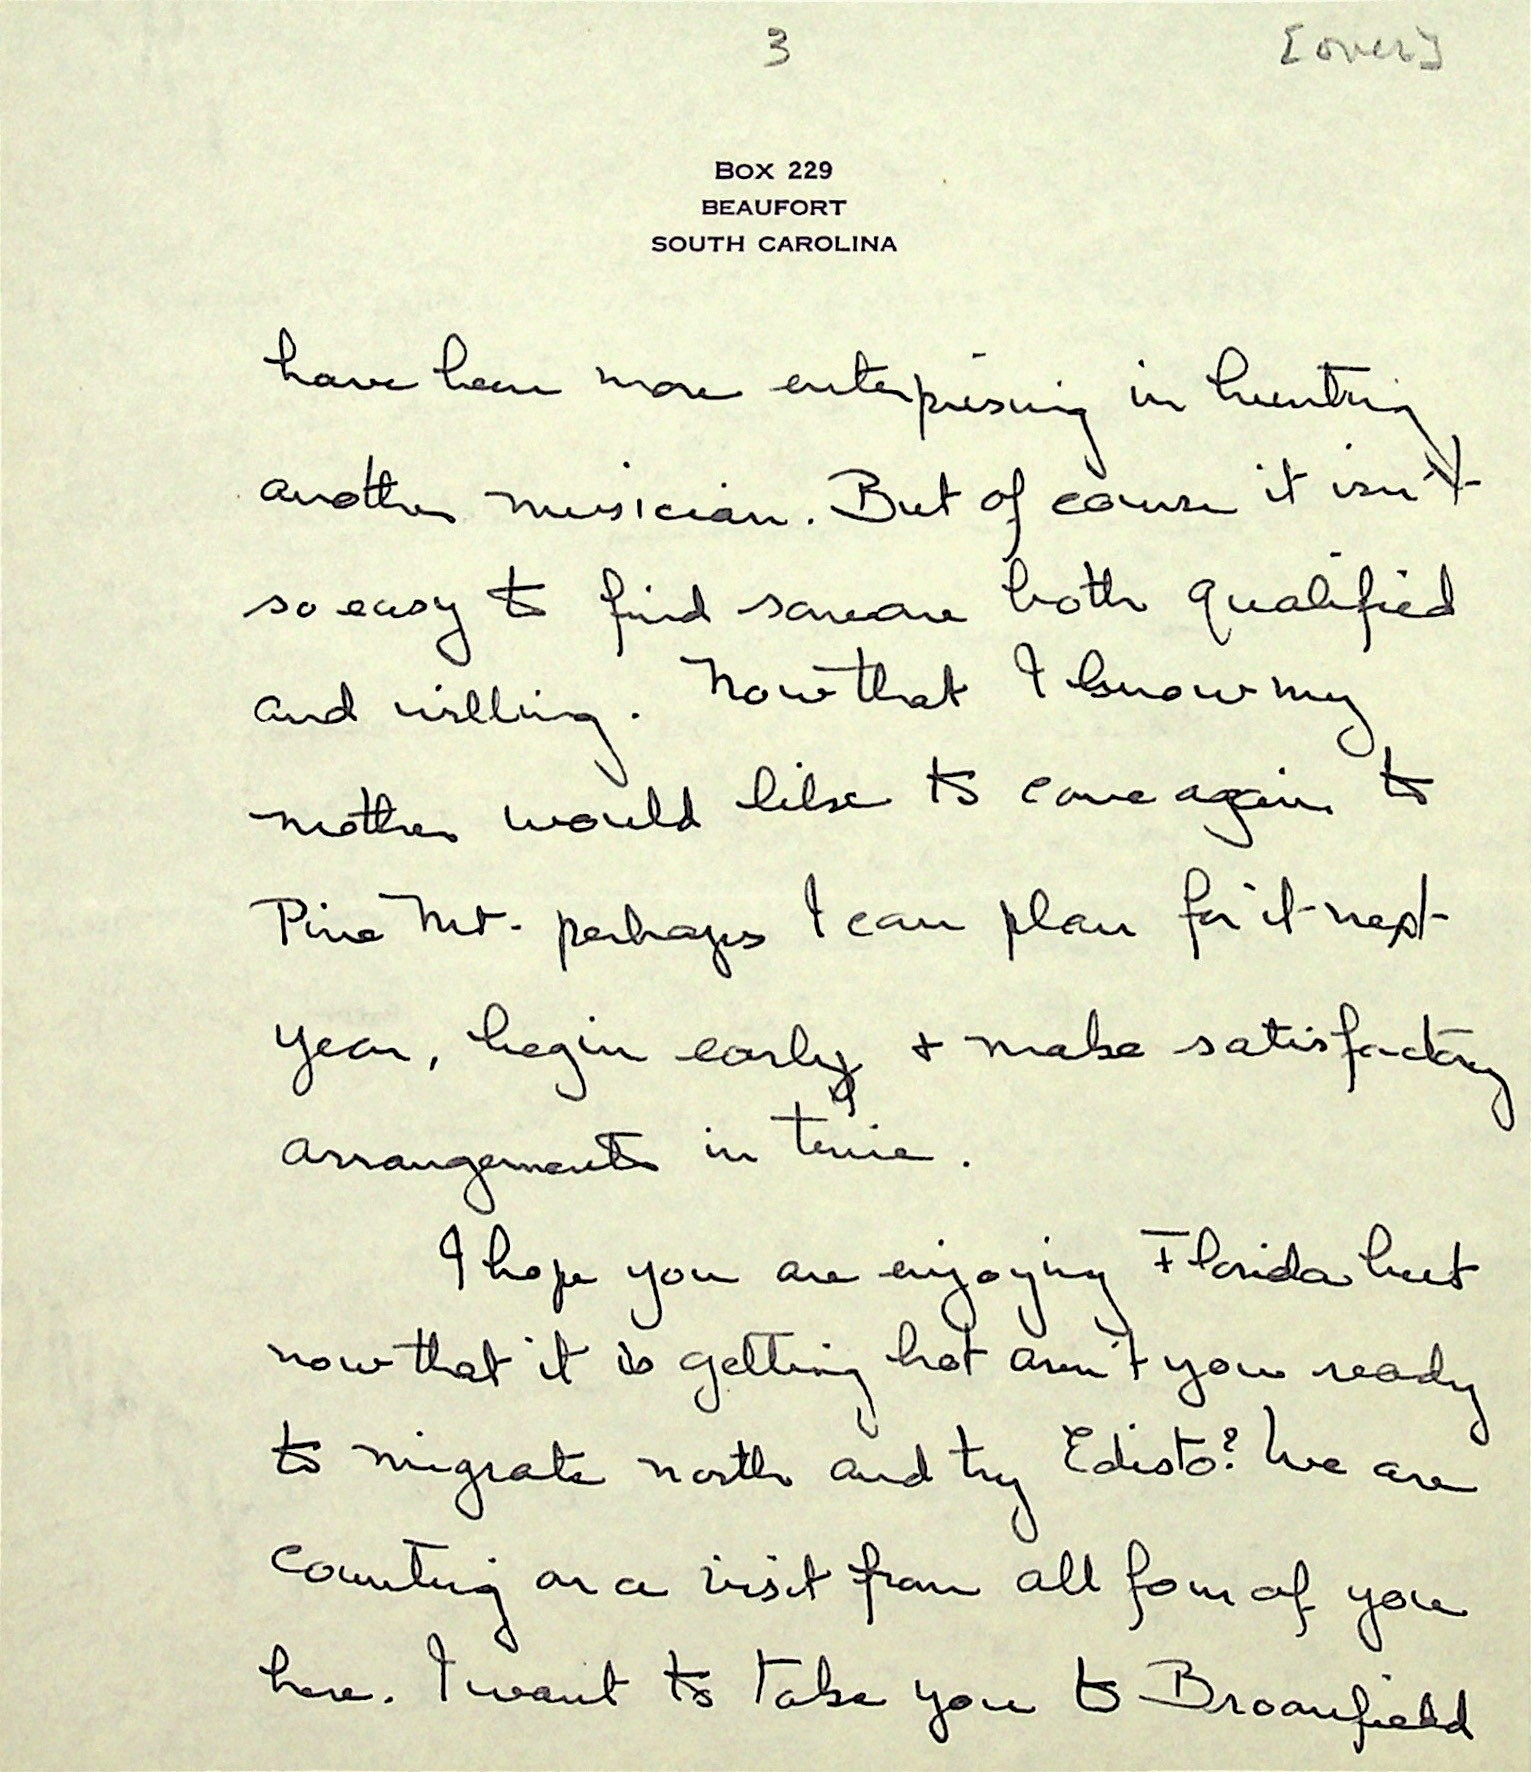 3 [over]
BOX 229
BEAUFORT
SOUTH CAROLINA
have been more enterprising in hunting
another musician. But of course it isn't
so easy to find someone both qualified
and willing. Now that I know my
mother would like to come again to
Pine Mt. perhaps I can plan for it next
year, begin early & make satisfactory
arrangements in time.
I hope you are enjoying Florida but
now that it is getting hot aren't you ready
to migrate north and try Edisto? We are
counting on a visit from all four of you
here. I want to take you to Broomfield